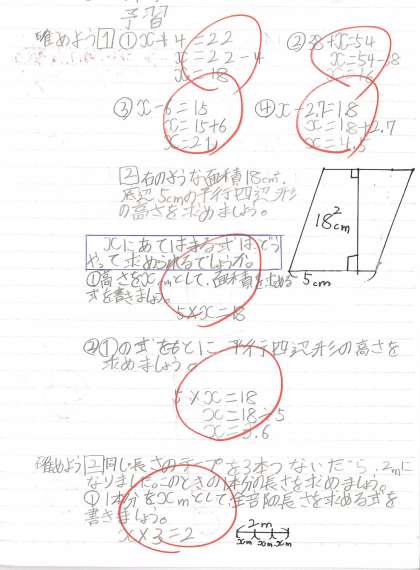 予習
確めよう 1 ① x+4=22 ② 38+x=54
x=22-4 x=54-38
x=18 x=16
③ x-6=15 ④ x-2.7=1.8
x=15+6 x=1.8+2.7
x=21 x=4.5
2 右のような面積18cm²、
底辺5cmの平行四辺形
の高さを求めましょう。
18cm²
5cm
xにあてはまる式は、どう
やって求められるでしょうか。
①高さをxcmとして、面積を求める
式を書きましょう。
5×x=18
②①の式をもとに、平行四辺形の高さを
求めましょう。
5×x=18
x=18÷5
x=3.6
確めよう 2 同じ長さのテープを3本つないだら、2mに
なりました。このときの1本分の長さを求めましょう。
①1本分をxmとして、全部の長さを求める式を
書きましょう。
x×3=2
2m
xm xm xm